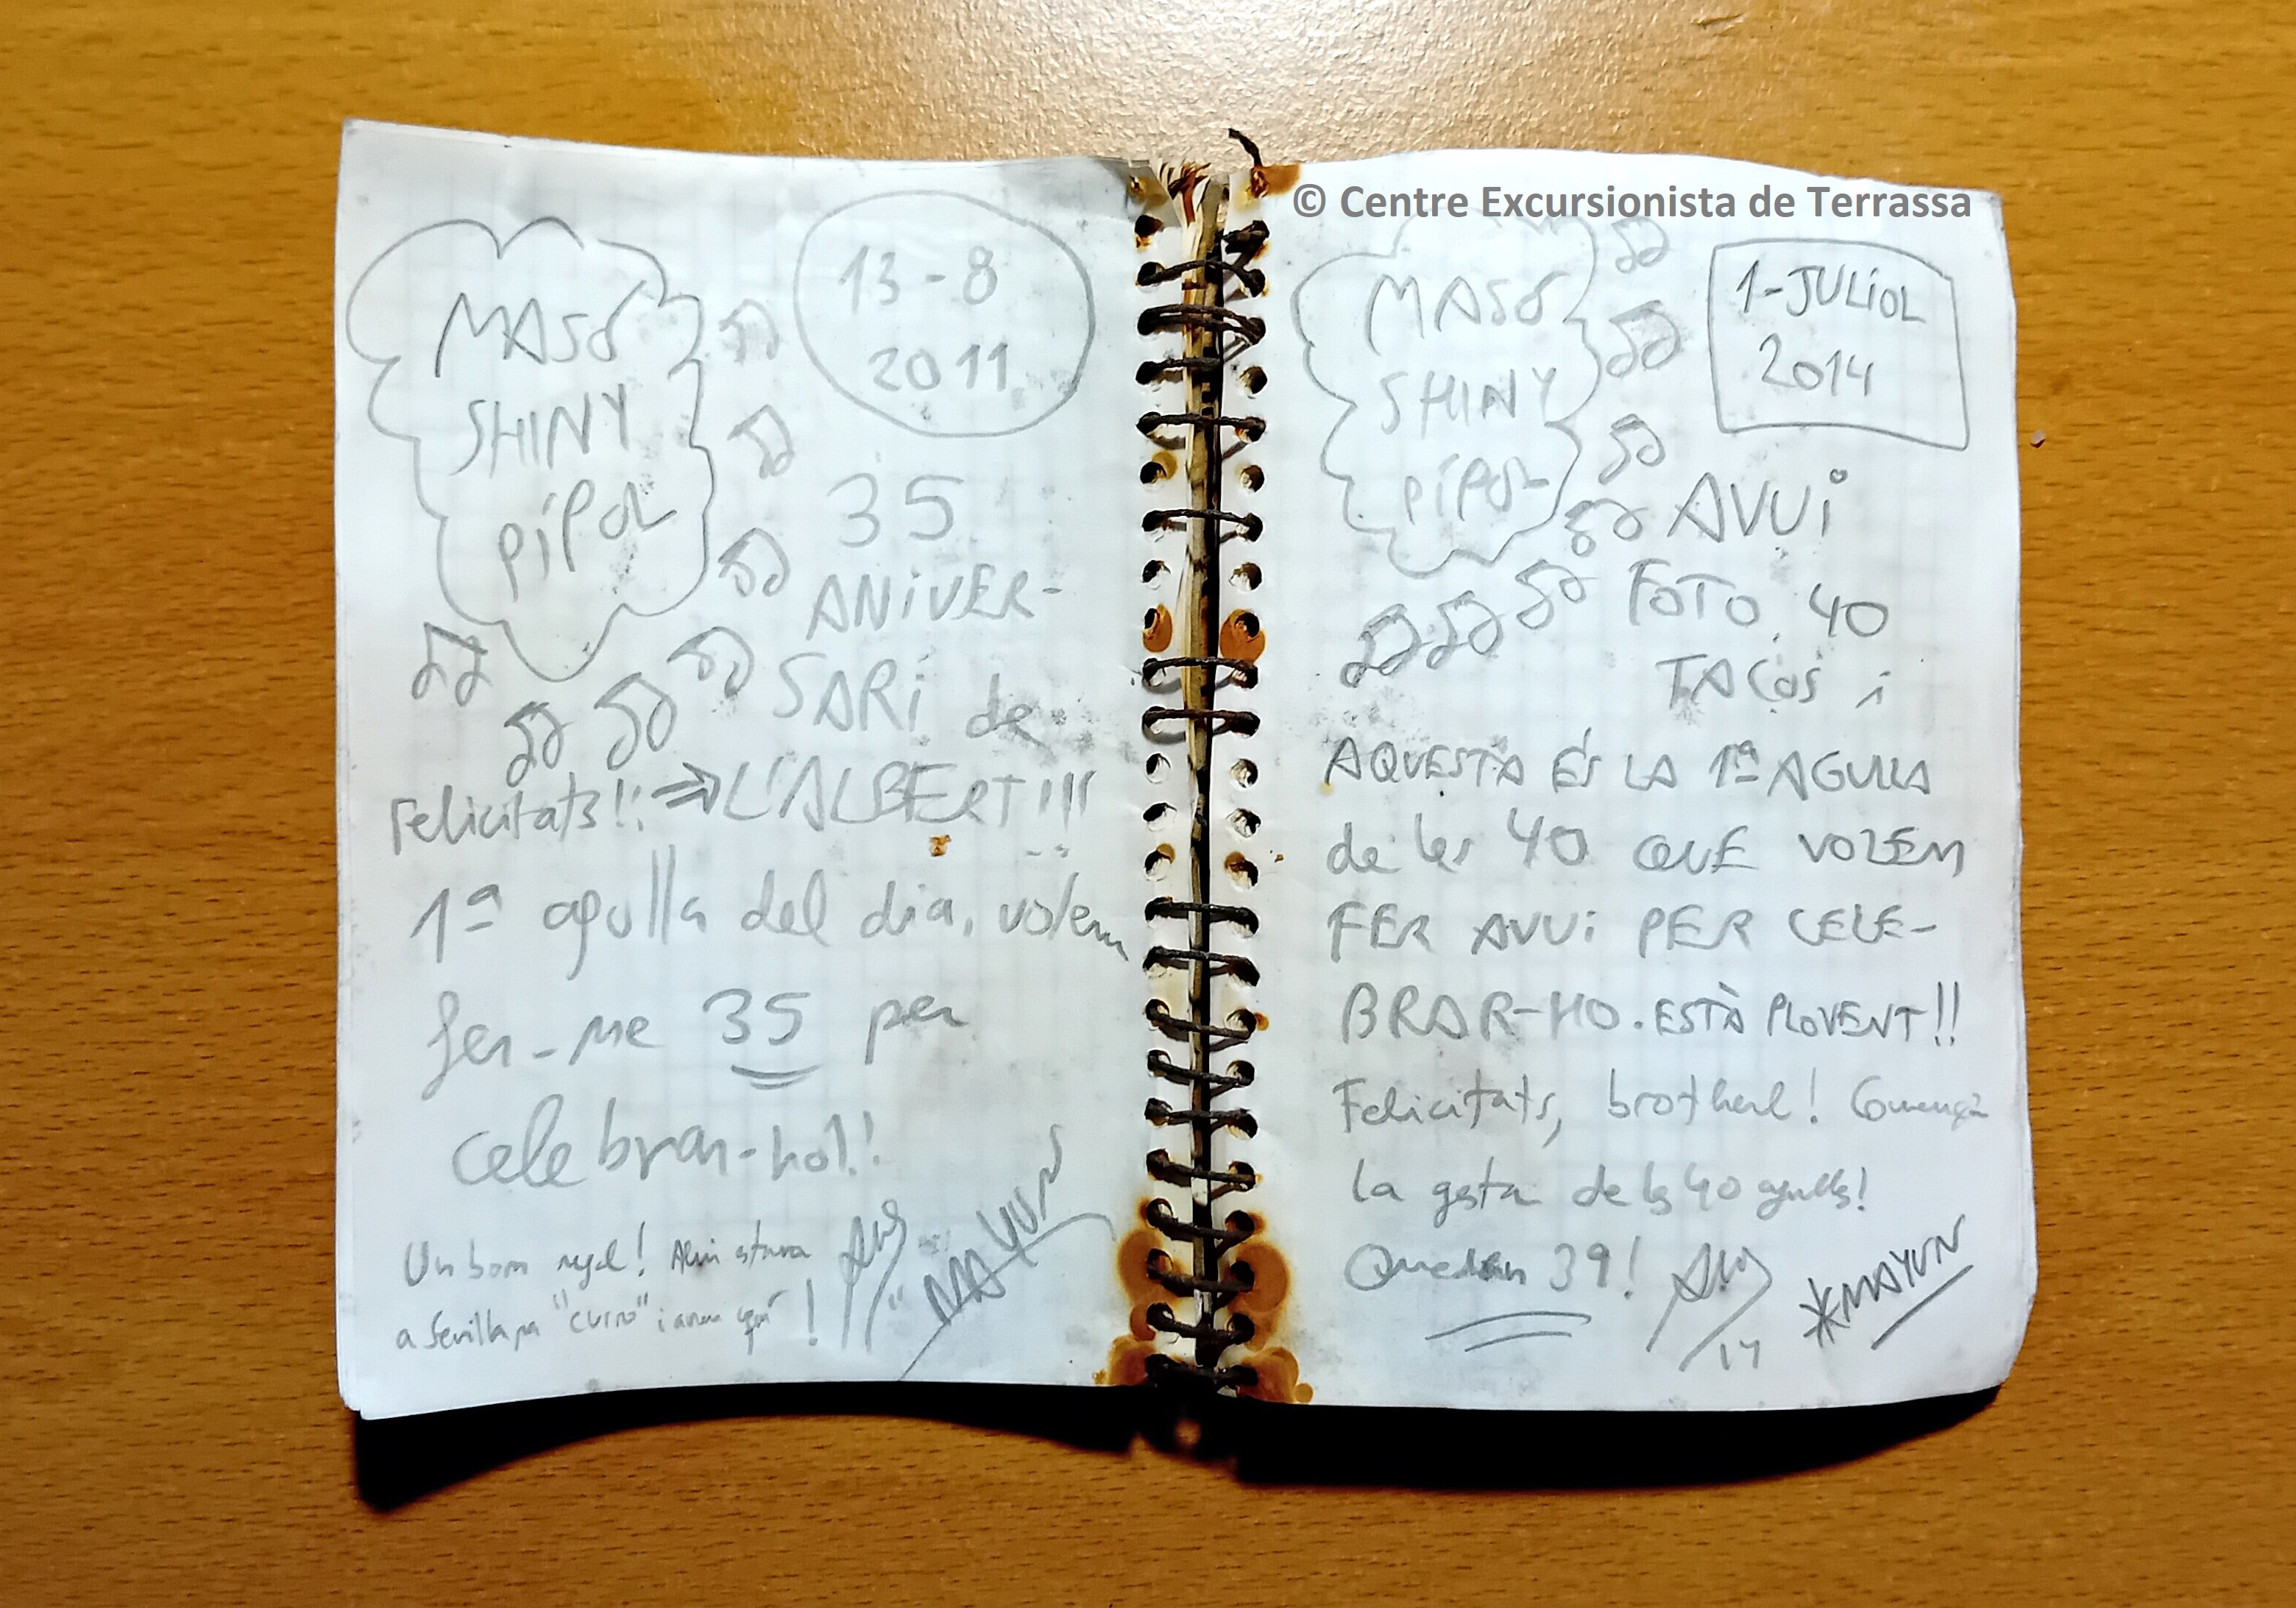 © Centre Excursionista de Terrassa
MASO
SHINY
PÍPOL
13-8
2011
35
ANIVER-
SARI de
Felicitats!! ⇒ L'ALBERT!!!
1ª agulla del dia, volem
fer-ne 35 per
celebrar-ho!!
Un bom regal! Ahir estava
a Sevilla pa "curro" i avui aquí!
MAYUN
MASO
SHINY
PÍPOL
1-JULIOL
2014
AVUI
FOTO 40
TACOS i
AQUESTA ÉS LA 1ª AGULLA
de les 40 QUE VOLEM
FER AVUI PER CELE-
BRAR-HO. ESTÀ PLOVENT!!
Felicitats, brother! Comença
la gesta de les 40 agulles!
Queden 39!
14
*MAYUN